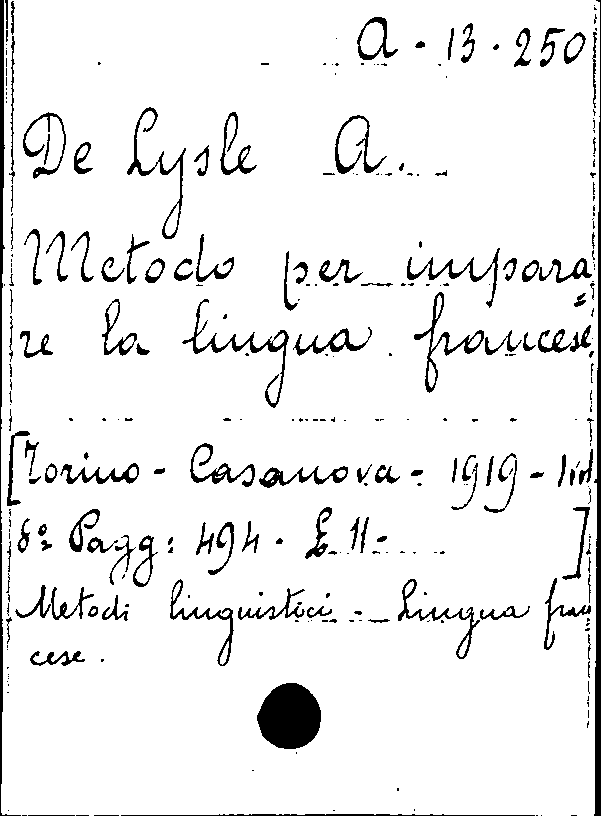 A - 13 - 250
De Lysle A.
Metodo per impara=
re la lingua francese
[Torino - Casanova - 1919 - 1 vol.
8º Pagg: 494 - £ 11 - ]
Metodi linguistici - Lingua fran
cese.